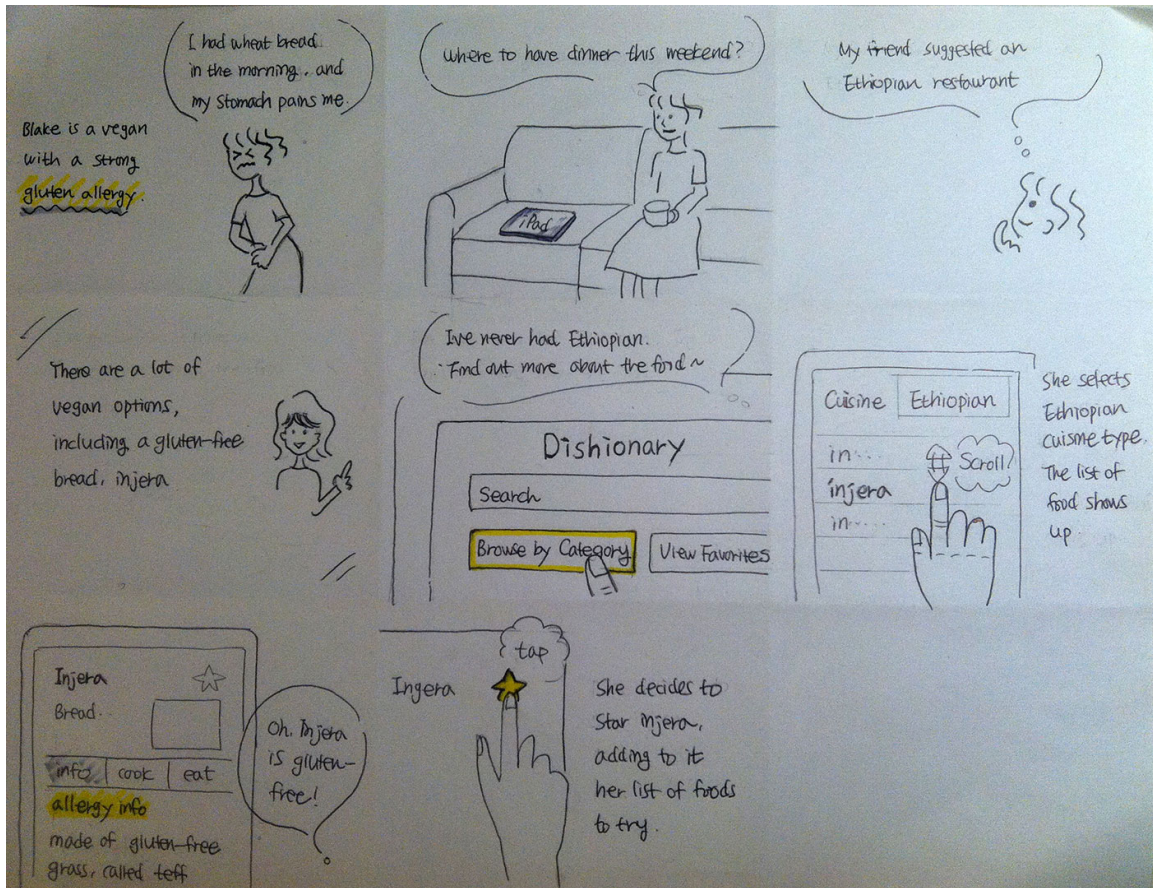 Blake is a vegan
with a strong
gluten allergy.
I had wheat bread
in the morning, and
my stomach pains me.
Where to have dinner this weekend?
iPad
My friend suggested an
Ethiopian restaurant
There are a lot of
vegan options,
including a gluten-free
bread, injera
I've never had Ethiopian.
Find out more about the food~
Dishionary
Search
Browse by Category
View Favorites
Cuisine
Ethiopian
in....
injera
in.....
Scroll
She selects
Ethiopian
cuisine type.
The list of
food shows
up.
Injera
Bread..
info
cook
eat
allergy info
made of gluten-free
grass, called teff
Oh. Injera
is gluten-
free!
Ingera
tap
She decides to
star injera,
adding to it
her list of foods
to try.